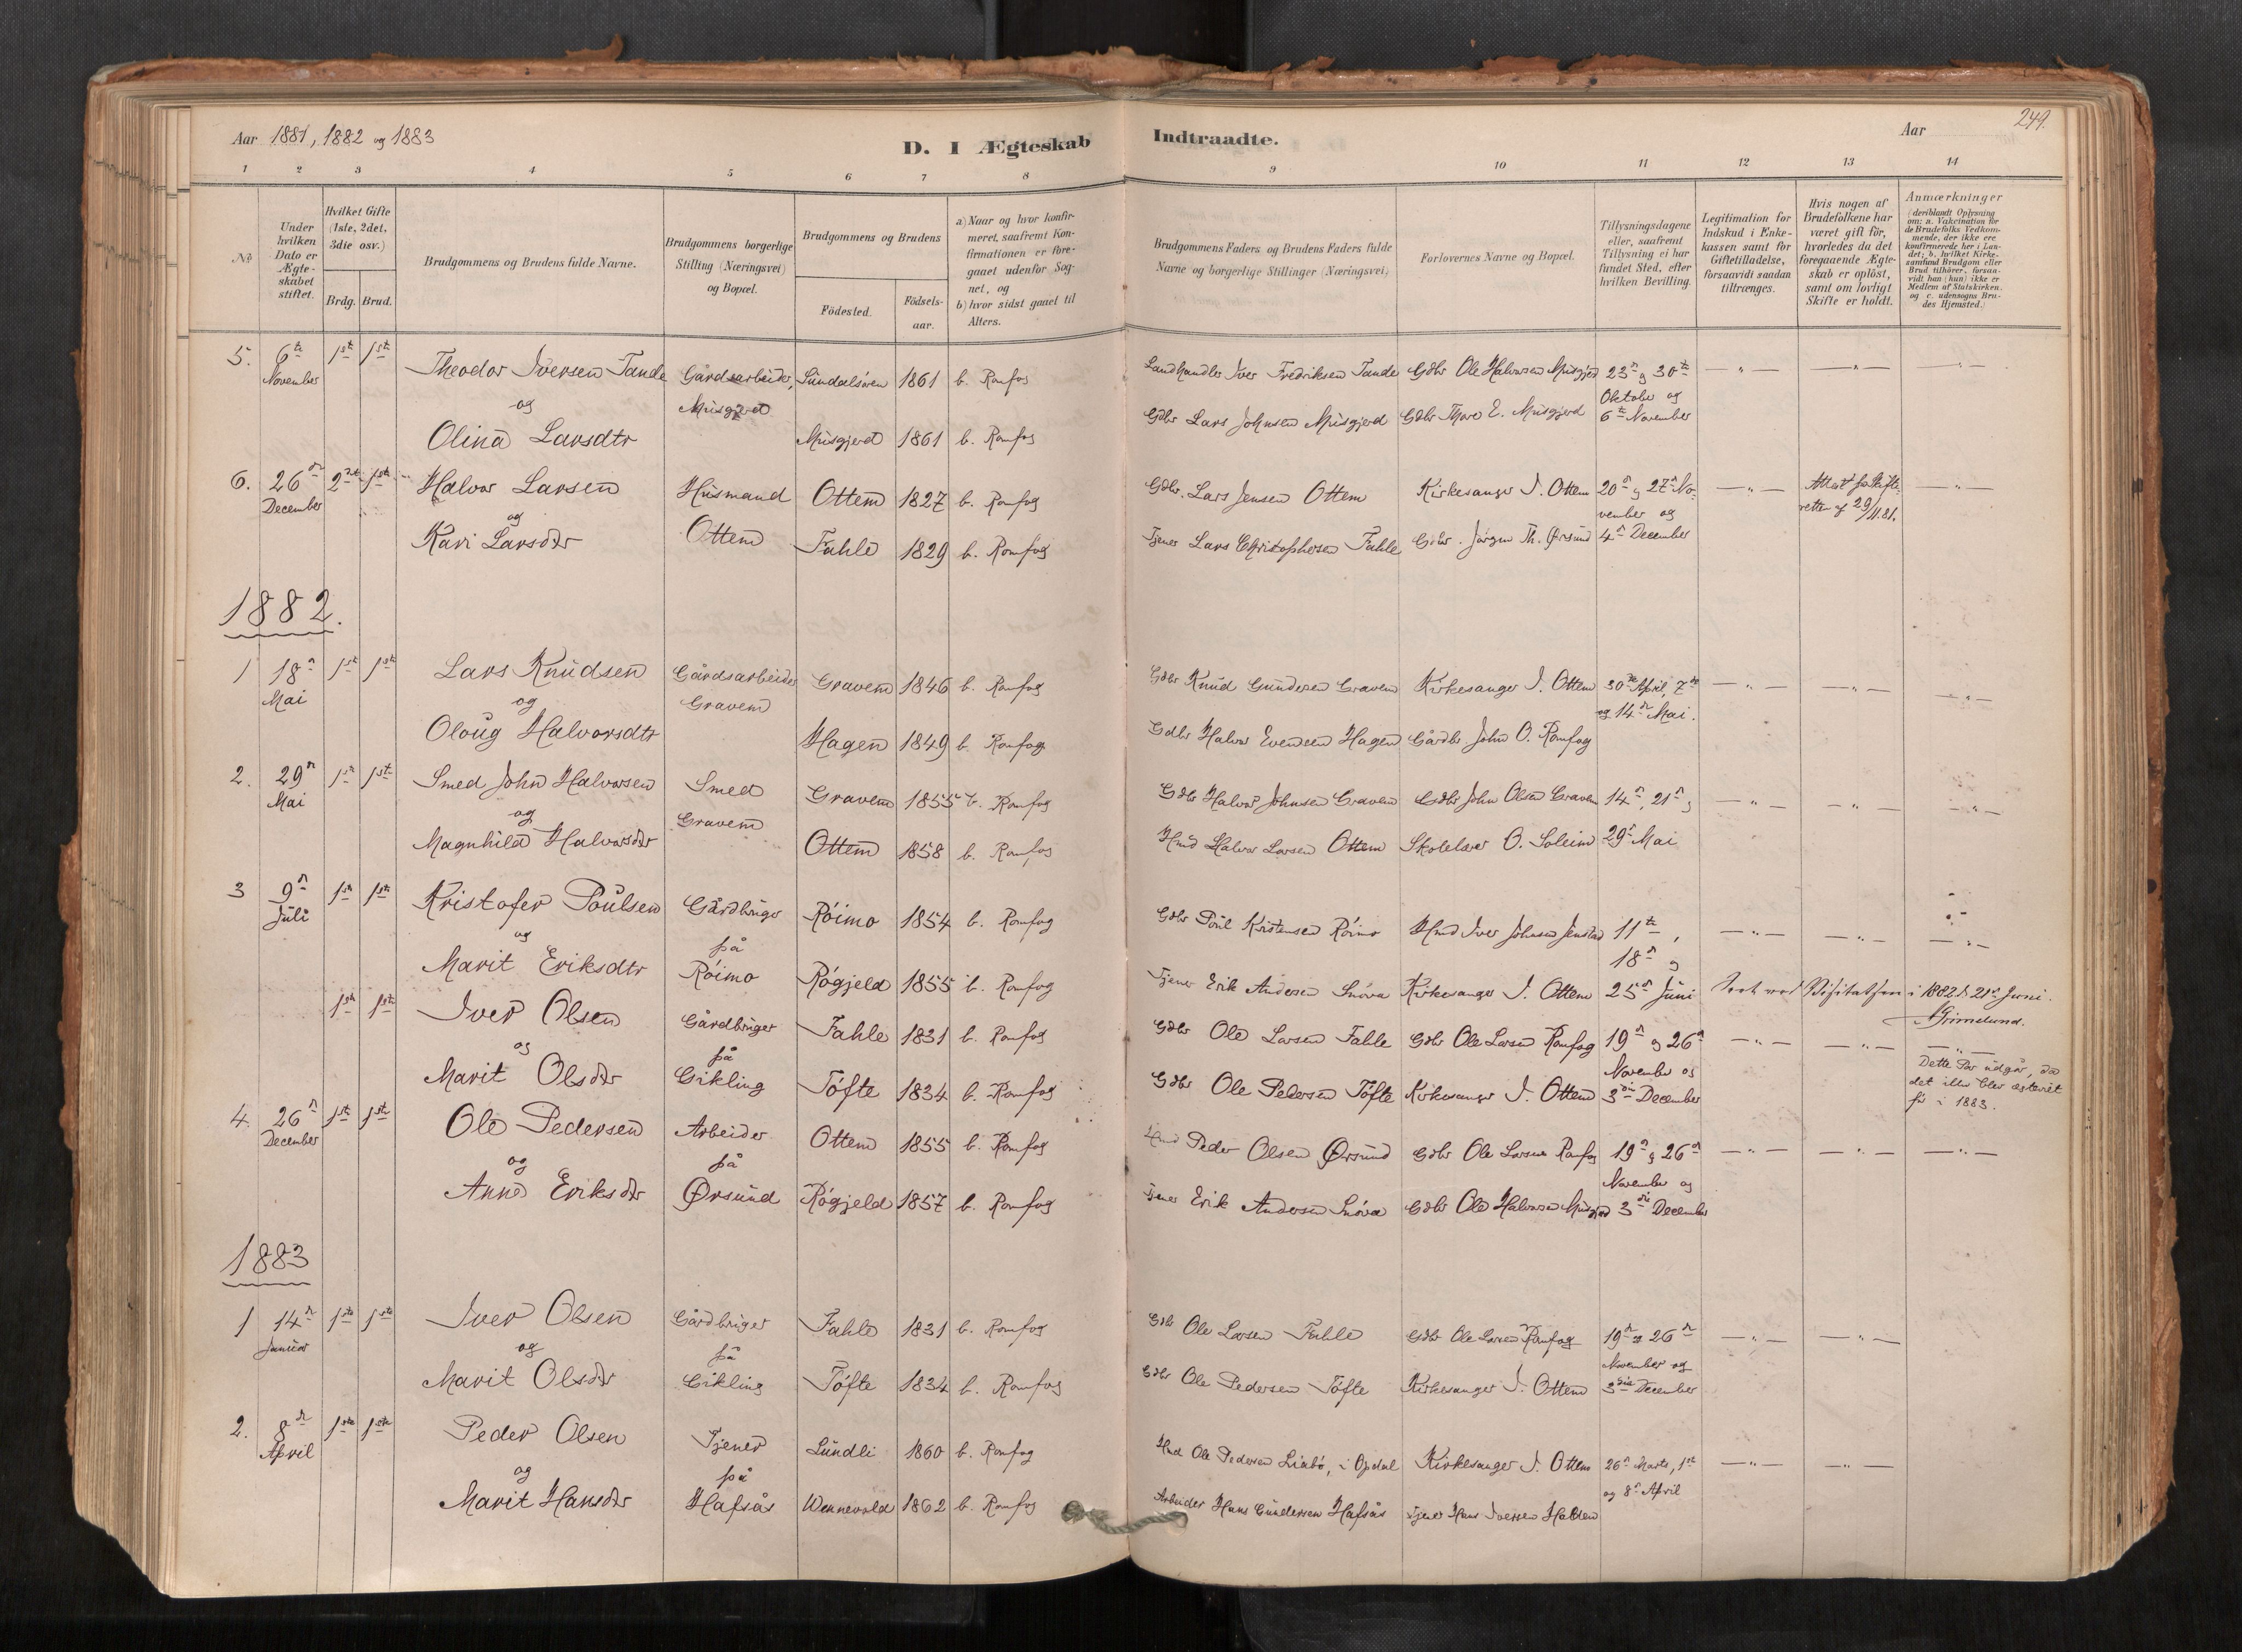 Aar 1881, 1882 og 1883
D. I Ægteskab Indtraadte.
Aar
249.
1 2 3 4 5 6 7 8 9 10 11 12 13 14
No
Under hvilken Dato er Ægteskabet stiftet.
Hvilket Gifte (1ste, 2det, 3die osv.)
Brdg. Brud.
Brudgommens og Brudens fulde Navne.
Brudgommens borgerlige Stilling (Næringsvei) og Bopæl.
Brudgommens og Brudens
Födested.
Födselsaar.
a) Naar og hvor konfirmeret, saafremt Konfirmationen er foregaaet udenfor Sognet, og
b) hvor sidst gaaet til Alters.
Brudgommens Faders og Brudens Faders fulde Navne og borgerlige Stillinger (Næringsvei)
Forlovernes Navne og Bopæl.
Tillysningsdagene eller, saafremt Tillysning ei har fundet Sted, efter hvilken Bevilling.
Legitimation for Indskud i Enkekassen samt for Giftetilladelse, forsaavidt saadan tiltrænges.
Hvis nogen af Brudefolkene har været gift för, hvorledes da det foregaaende Ægteskab er oplöst, samt om lovligt Skifte er holdt.
Anmærkninger
(deriblandt Oplysning om: a. Vakcination for de Brudefolks Vedkommende, der ikke ere konfirmerede her i Landet; b. hvilket Kirkesamfund Brudgom eller Brud tilhörer, forsaavidt han (hun) ikke er Medlem af Statskirken. og c. udensogns Brudes Hjemsted.)
5. 6te November 1st 1ste Theodor Iversen Tande Gårdsarbeider, Sundalsören 1861 b. Romfog Landhandler Iver Fredriksen Tande Gdbr Ole Halvorsen Musgjerd 23n og 30te
og Musgjerd Oktober og
Olina Larsdtr Musgjerd 1861 b. Romfog Gdbr Lars Johnsen Musgjerd Gdbr Thore E. Musgjerd 6te November
6. 26n December 2det 1ste Halvor Larsen Husmand Ottem 1827 b. Romfog Gdbr. Lars Jensen Ottem Kirkesanger I. Ottem 20n og 27n No- Attest fra Skifte-
og vember og retten af 29/11.81.
Kari Larsdtr Ottem Fahle 1829 b. Romfog Tjener Lars Christophersen Fahle Gdbr. Jörgen Th. Örsund 4n December
1882.
1 18n Mai 1ste 1ste Lars Knudsen Gårdsarbeider Gravem 1846 b. Romfog Gdbr Knud Gundersen Gravem Kirkesanger I. Ottem 30te April, 7de
og Gravem og 14n Mai.
Oloug Halvorsdtr Hagen 1849 b. Romfog Gdbr Halvor Evensen Hagen Gårdbr John O. Romfog
2. 29n Mai 1ste 1ste Smed John Halvorsen Smed Gravem 1855 b. Romfog Gdbr Halvor Johnsen Gravem Gdbr John Olsen Gravem 14n, 21n og
og Gravem
Magnhild Halvorsdtr Ottem 1858 b. Romfog Hmd Halvor Larsen Ottem Skolelærer O. Soleim 29n Mai
3 9n Juli 1ste 1ste Kristofer Poulsen Gårdbruger Röimo 1854 b. Romfog Gdbr Poul Kristensen Röimo Hmd Iver Johnsen Jenstad 11te,
og på 18n og
Marit Eriksdtr Röimo Rögjeld 1855 b. Romfog Tjener Erik Andersen Snöva Kirkesanger I. Ottem 25n Juni
Seet ved Visitatsen i 1882 d. 21n Juni.
Grimelund.
1ste 1ste Iver Olsen Gårdbruger Fahle 1831 b. Romfog Gdbr Ole Larsen Fahle Gdbr Ole Larsen Romfog 19n og 26n
og på November og
Marit Olsdtr Gikling Töfte 1834 b. Romfog Gdbr Ole Pedersen Töfte Kirkesanger I. Ottem 3die December
Dette Par udgår, da
det ikke blev ægteviet
för i 1883.
4. 26n December 1ste 1ste Ole Pedersen Arbeider Ottem 1855 b. Romfog Hmd Peder Olsen Örsund Gdbr Ole Larsen Romfog 19n og 26n
og på November og
Anne Eriksdtr Örsund Rögjeld 1857 b. Romfog Tjener Erik Andersen Snöva Gdbr Ole Halvorsen Musgjerd 3die December
1883
1 14n Januar 1ste 1ste Iver Olsen Gårdbruger Fahle 1831 b. Romfog Gdbr Ole Larsen Fahle Gdbr Ole Larsen Romfog 19n og 26n
og på November og
Marit Olsdtr Gikling Töfte 1834 b. Romfog Gdbr Ole Pedersen Töfte Kirkesanger I. Ottem 3die December
2. 8n April 1ste 1ste Peder Olsen Tjener Lundli 1860 b. Romfog Hmd Ole Pedersen Liabö, i Opdal Kirkesanger I. Ottem 26n Marts, 1st
og på og 8n April
Marit Hansdtr Hafsås Wennevold 1862 b. Romfog Arbeider Hans Gundersen Hafsås Tjener Hans Iversen Holden